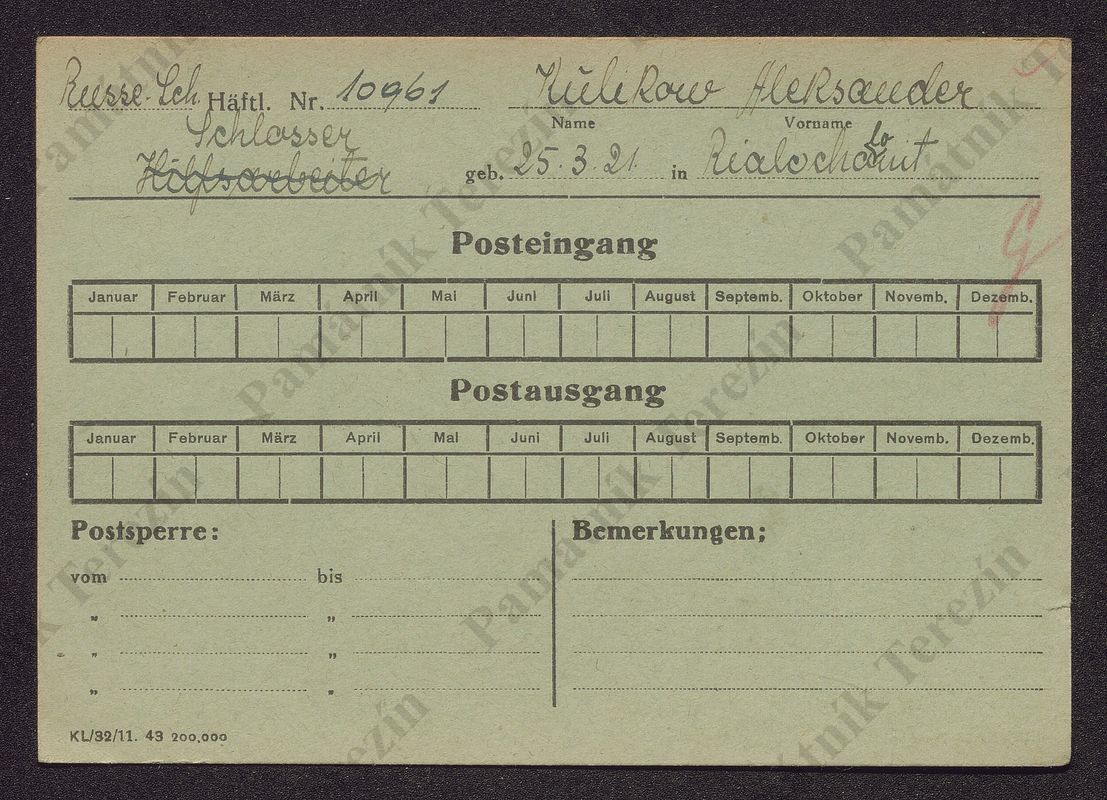 Russe. Sch. Häftl. Nr. 10961 Kulikow Aleksander
Name Vorname
Schlosser
Hilfsarbeiter geb. 25.3.21 in
Posteingang
Januar Februar März April Mai Juni Juli August Septemb. Oktober Novemb. Dezemb.
Postausgang
Januar Februar März April Mai Juni Juli August Septemb. Oktober Novemb. Dezemb.
Postsperre: Bemerkungen;
vom bis
„ „
„ „
„ „
KL/32/11. 43 200,000
Památník Terezín